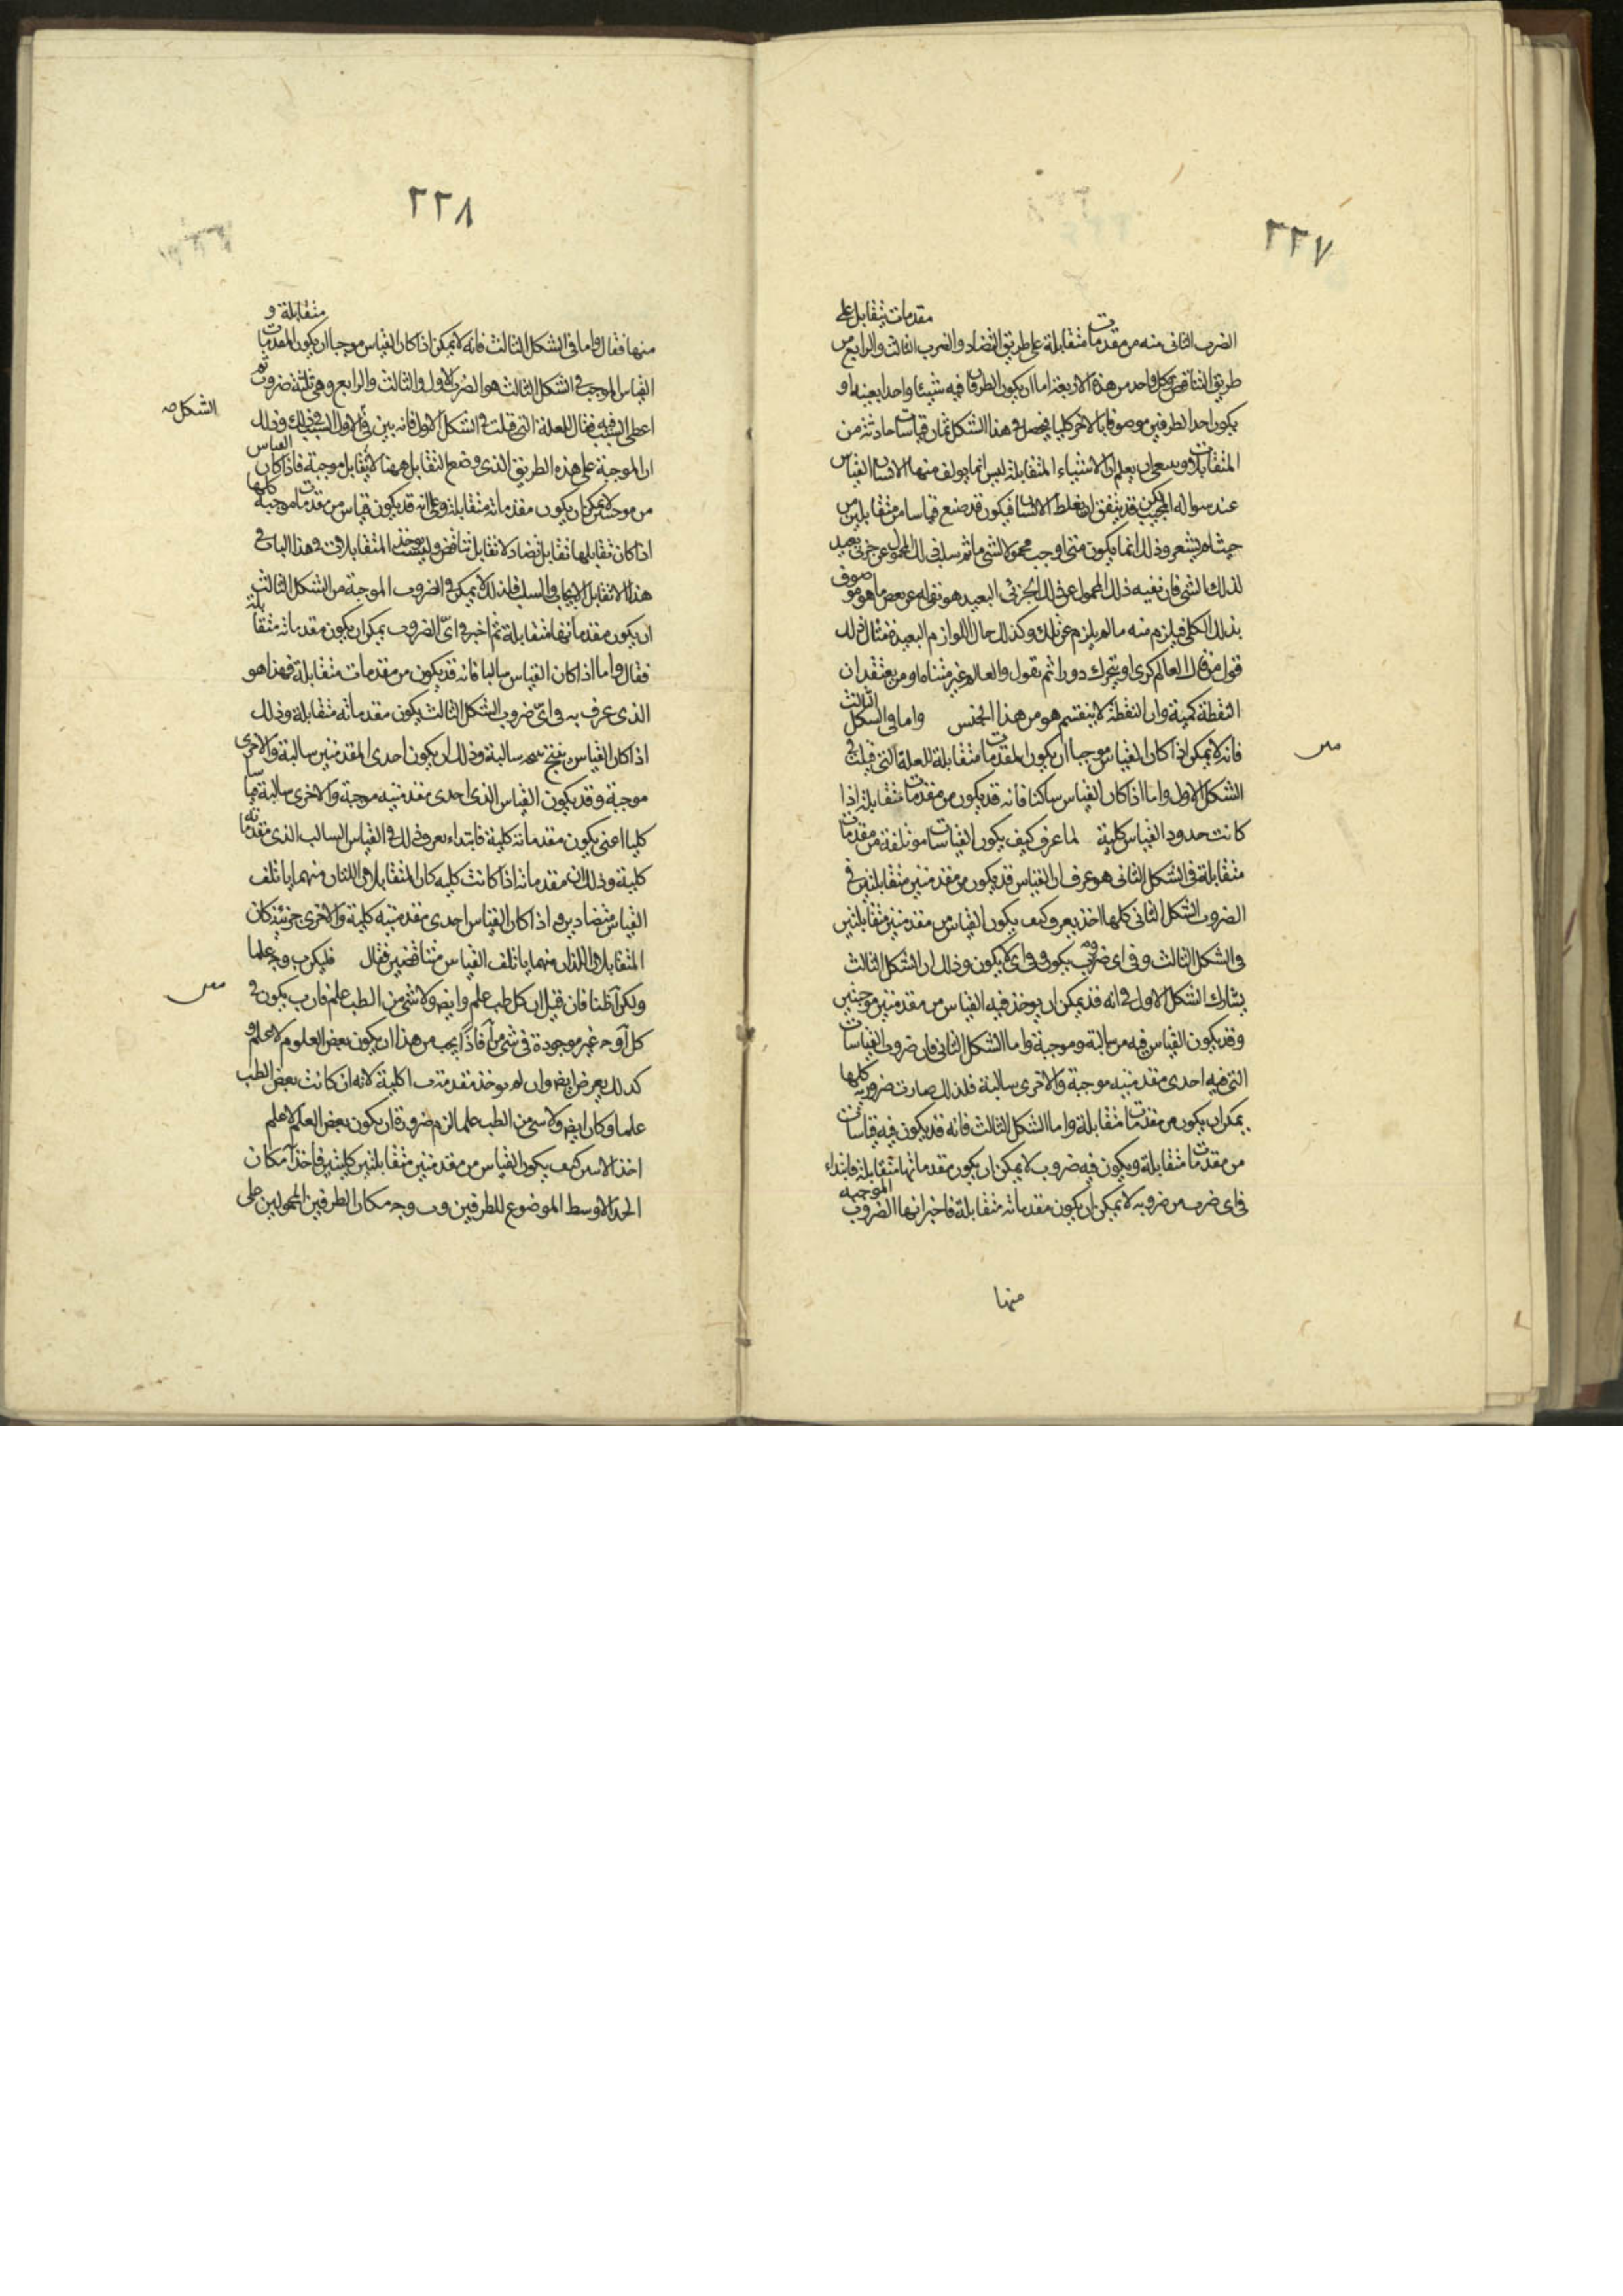 ٢٢٧
مقدمات يتقابل على
الضرب الثانى منه من مقدمات متقابلة على طريق التضاد والضرب الثالث والرابع من
طريق التناقض وكل واحد من هذه الاربعة اما ان يكون الطرفان فيه شيئا واحدا بعينه او
يكون احد الطرفين موصوفا بالاخر كليا فيحصل فى هذا الشكل ثمان قياسات حادثة من
المتقابلات وينبغى ان يعلم ان الاشياء المتقابلة ليس انما يولف منها الانسان القياس
عند سواله المجيب لكن قد يتفق ان يغلط الانسان فيكون قد صنع قياسا من متقابلين من
حيث لم يشعر وذلك انما يكون متى اوجب محمولا لشى ما ثم سلب ذلك المحمول عن جزئى بعيد
لذلك الشى فان نفيه ذلك المحمول عن ذلك الجزئى البعيد هو نفيه له عن بعض ما هو موصوف
بذلك الكلى فيلزم منه ما لم يلزم عن تلك وكذلك حال اللوازم البعيدة مثال ذلك
قول من قال العالم كرى او يتحرك دورا ثم يقول والعالم غير متناه او من يعتقد ان
النقطة كمية وان النقطة لا ينقسم هو من هذا الجنس واما فى الشكل الثالث
فانه لا يمكن اذا كان القياس موجبا ان يكون المقدمات متقابلة للعلة التى قيلت فى
الشكل الاول واما اذا كان القياس سالبا فانه قد يكون من مقدمات متقابلة اذا
كانت حدود القياس كلية لما عرف كيف يكون القياسات موتلفة من مقدمات
متقابلة فى الشكل الثانى هو عرف ان القياس قد يكون من مقدمتين متقابلتين فى
الضروب الشكل الثانى كلها اخذ يعرف كيف يكون القياس من مقدمتين متقابلتين
فى الشكل الثالث وفى اى ضروبه يكون وفى اى لا يكون وذلك ان الشكل الثالث
يشارك الشكل الاول فى انه قد يمكن ان يوخذ فيه القياس من مقدمتين موجبتين
وقد يكون القياس فيه من سالبة وموجبة واما الشكل الثانى فان ضروب القياسات
التى فيه احدى مقدمتيه موجبة والاخرى سالبة فلذلك صارت ضروبه كلها
يمكن ان يكون من مقدمات متقابلة واما الشكل الثالث فانه قد يكون فيه قياسات
من مقدمات متقابلة ويكون فيه ضروب لا يمكن ان يكون مقدماتها متقابلة فابتداء
فى اى ضرب من ضروبه لا يمكن ان يكون مقدماته متقابلة فاخبر انها الضروب الموجبه
منها
٢٢٨
متقابلة و
منها فقال واما فى الشكل الثالث فانه لا يمكن اذا كان القياس موجبا ان يكون المقدمات
القياس الموجب فى الشكل الثالث هو الضرب الاول والثالث والرابع وهى ثلثة ضروب ثم
الشكل صه
اعطى السبب فيه فقال للعلة التى قيلت فى الشكل الاول فانه بين فى الاول السبب فى ذلك وذلك
ان الموجبة على هذه الطريق الذى وضع التقابل ههنا لا يقابل موجبة فاذا كان القياس
من موجبتين لا يمكن ان يكون مقدماته متقابلة وعلى انه قد يكون قياس من مقدمات موجبة كلها
اذا كان تقابلها تقابل تضاد لا تقابل تناقض وليست يوخذ المتقابلات فى هذا الباب فى
هذا الا تقابل الايجاب والسلب فلذلك لا يمكن فى الضروب الموجبة من الشكل الثالث
ان يكون مقدماتها متقابلة ثم اخبر فى اىّ الضروب يمكن ان يكون مقدماته متقابلة
فقال واما اذا كان القياس سالبا فانه قد يكون من مقدمات متقابلة فهذا هو
الذى عرف به فى اىّ ضروب الشكل الثالث يكون مقدماته متقابلة وذلك
اذا كان القياس ينتج سالبة وذلك ان يكون احدى المقدمتين سالبة والاخرى
موجبة وقد يكون القياس الذى احدى مقدمتيه موجبة والاخرى سالبة
كليا اعنى يكون مقدماته كلية فابتداء يعرف ذلك فى القياس السالب الذى مقدماته
كلية وذلك ان مقدماته اذا كانت كليه كان المتقابلان اللتان منهما ياتلف
القياس متضادين واذا كان القياس احدى مقدمتيه كلية والاخرى جزئية كان
المتقابلان اللذان منهما ياتلف القياس متناقضين فقال فليكن ب وجـ علما
ولكن آ طبا فان قيل ان كل طب علم وايضا ولا شى من الطب علم فان ب يكون فى
كل آ وجـ غير موجودة فى شى من آ فاذا يجب من هذا ان يكون بعض العلوم لا علم و
كذلك يعرض ايضا وان لم يوخذ مقدمة ب ا كلية لانه ان كانت بعض الطب
علما وكان ايضا ولا شى من الطب علما لزم ضرورة ان يكون بعض العلم لا علم
اخذ الان يبين كيف يكون القياس من مقدمتين متقابلتين كليتين فاخذ آ مكان
الحد الاوسط الموضوع للطرفين وب وجـ مكان الطرفين المحمولين على